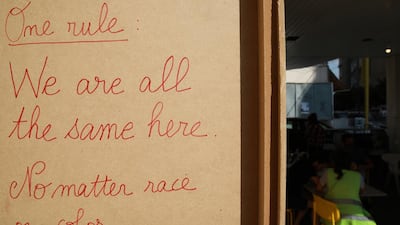 One rule :
We are all
the same here.
No matter race
or color